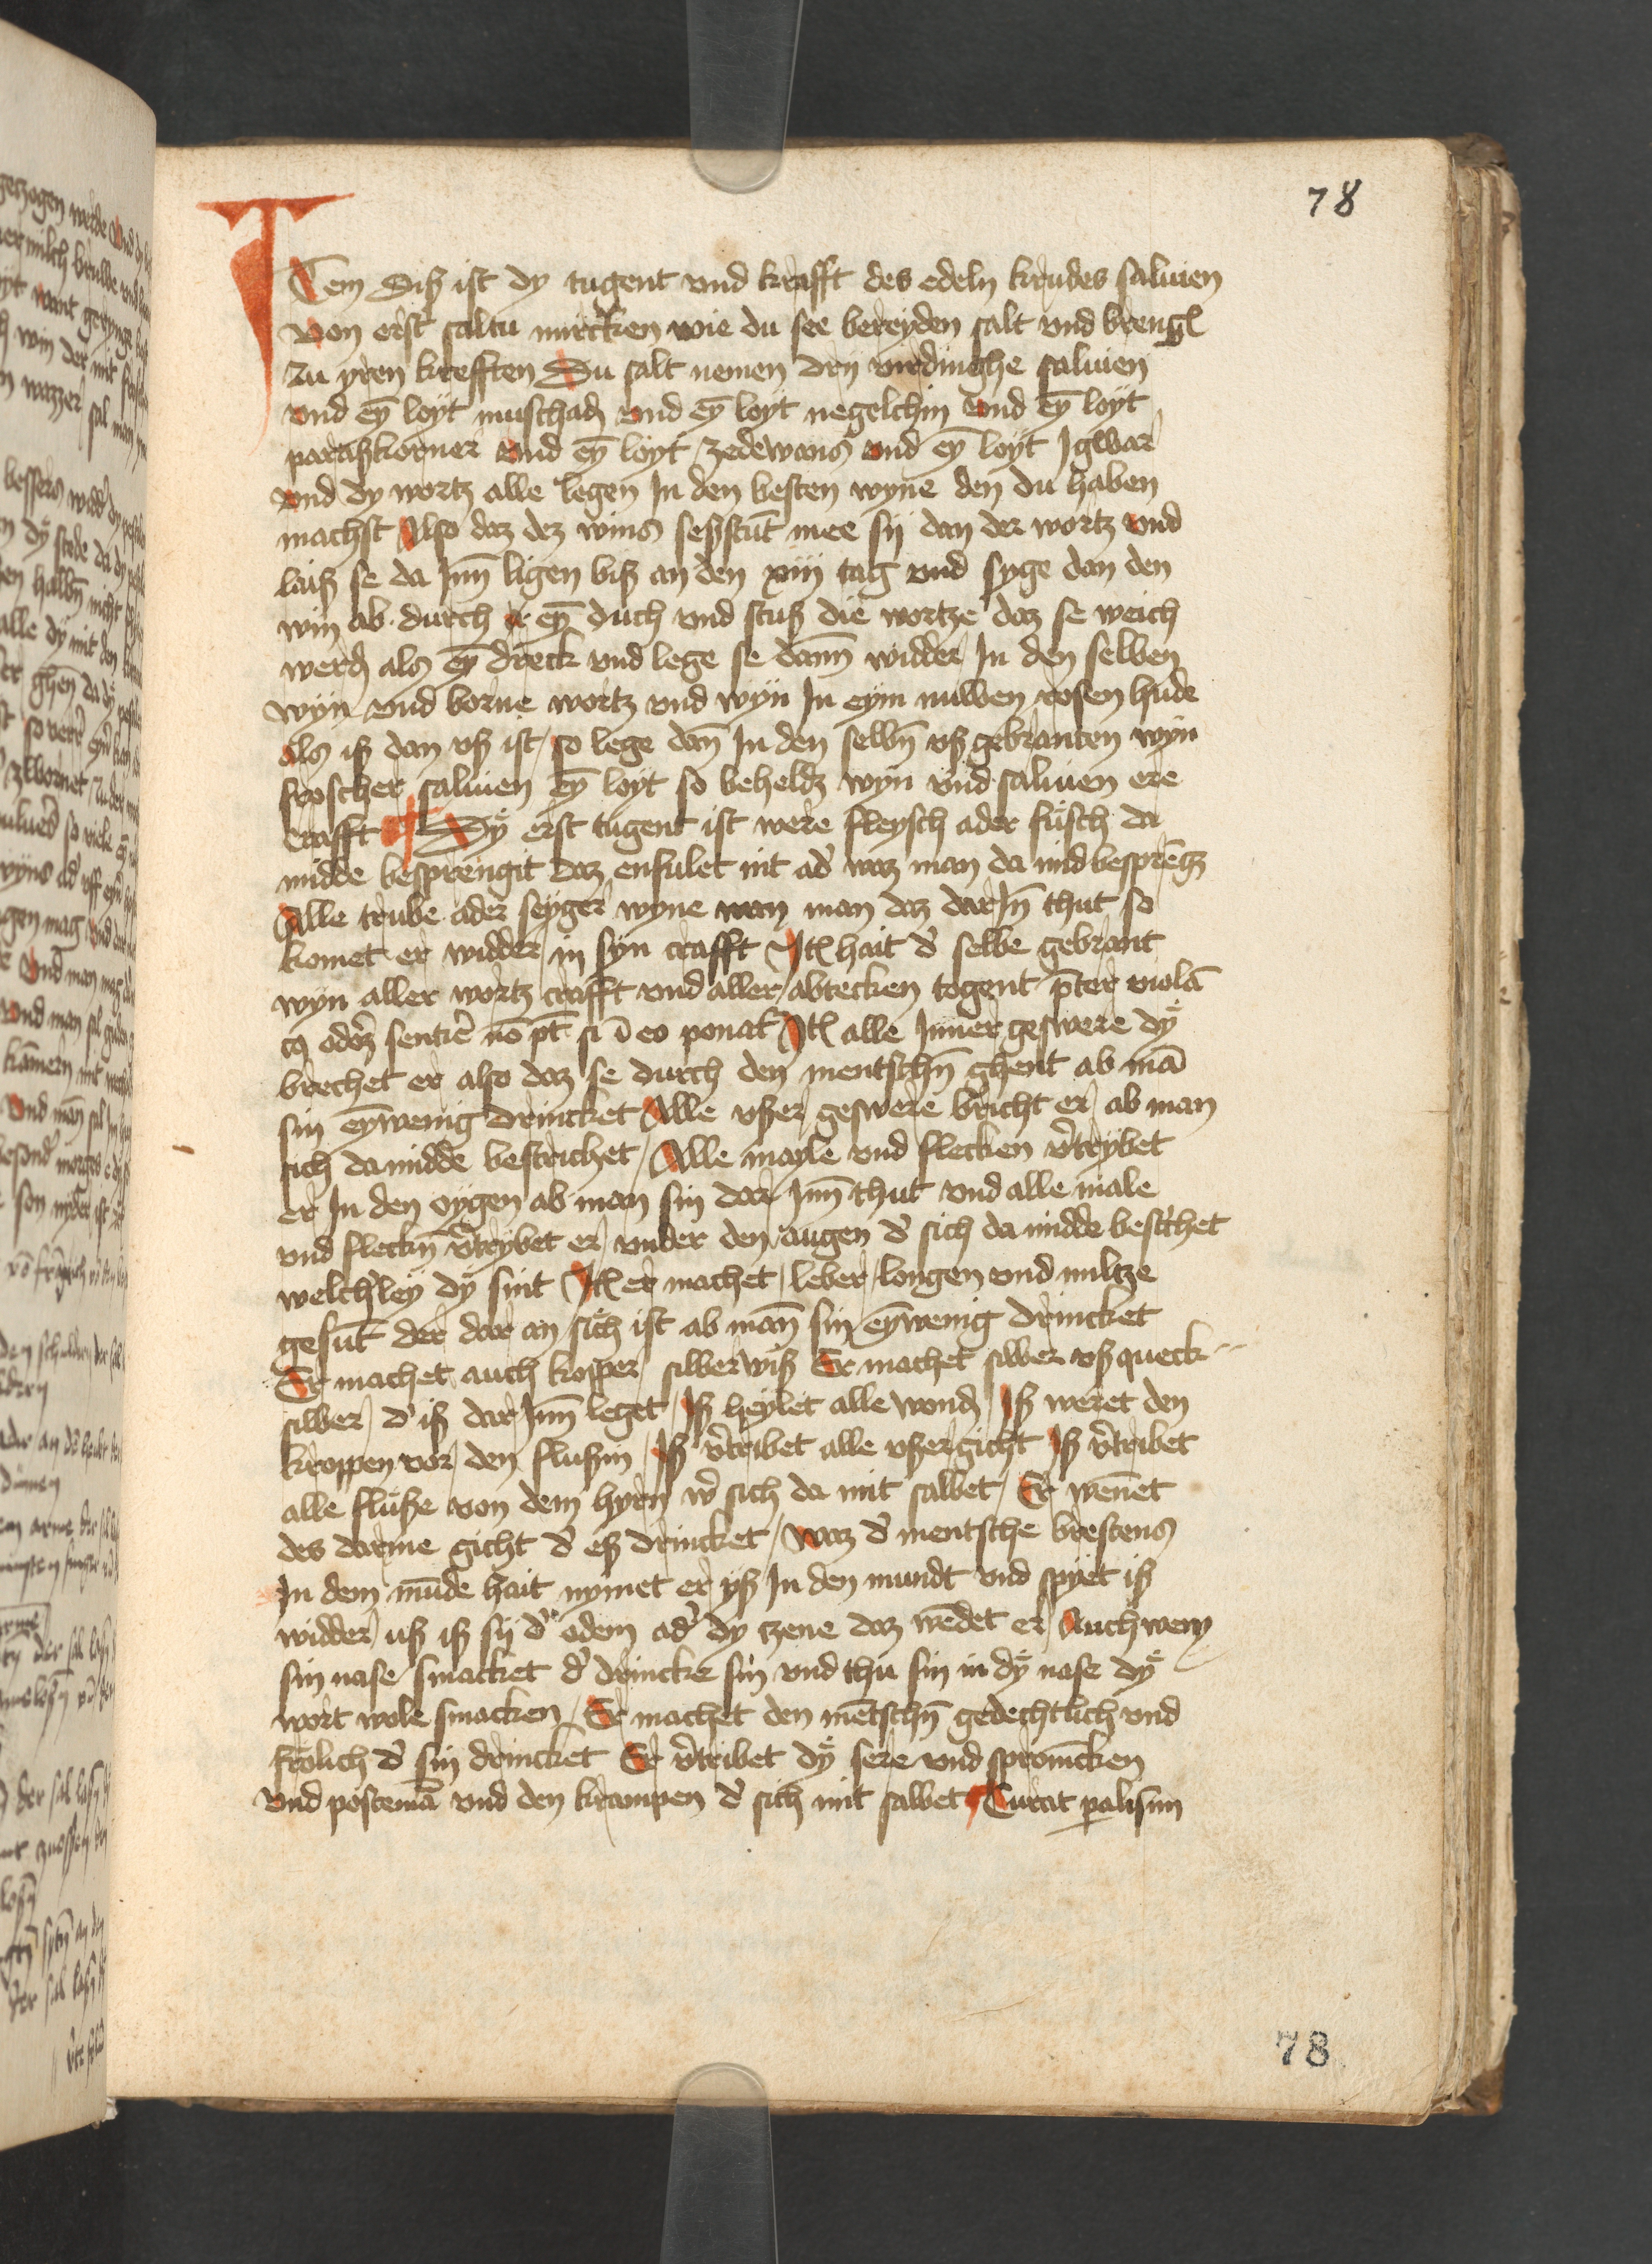 78
ITem Diß ist dy tugent vnd krafft des edeln krudes saluien
Von erst saltu mircken wie du see bereyden salt vnd breng
zu yren krefften Du salt nemen dry virdinghe saluien
vnd eȳ loyt muschadꝫ vnd eȳ loyt negelchin vnd eȳ loyt
parißkorner vnd eȳ loyt zedewans vnd eȳ loyt Jgwar
vnd dy wortz alle legen Jn den besten wyne den du haben
machst Also daz dez wins seßstūt mee sij dan der wortz vnd
laiß se da Jnn̄ ligen biß an den xiij tag vnd syge dan den
win ab durch eȳ duch vnd stuß die wortze daz se weich
werdꝫ als eȳ dreck vnd lege se dann̄ widder Jn den selben
wyn vnd borne wortz vnd wyn Jn eym nuwen rosen hude
als iß dan vß ist so lege dan̄ Jn den selbn̄ vß gebranten wyn
froscher saluien eȳ loyt so beheldꝫ wyn vnd saluien ere
crafft Dy erst tugent ist were fleysch ader fusch da
midde besprengit daz enfulet nit ad' waz man da mid besprēgꝫ
Alle trube ader seyger wyne wan man daz dar Jn̄ thut so
komet er widder in syn crafft Jtꝫ hait d' selbe gebrant
wyn aller wortz crafft vnd aller abtecken togent p̄ter violā
cꝫ odoꝫ sentire nō pt̄ si ī eo ponat Jtꝫ alle Jnner geswere dy
brechet er also daz se durch den mentschn̄ ghent ab mā
sin eȳ wenig drincket Alle vßer geswere bricht er ab man
sich da midde bestrichet Alle mayle vnd flecken v'trybet
er Jn den oygen ab man sin dar Jnn̄ thut vnd alle male
vnd fleckn̄ v'trybet er vnder den augen d' sich da midde bestrichet
welch'ley dy sint Jtꝫ er machet leber longen vnd miltze
gesūt der dar an sich ist ab man̄ sin eȳ wenig drincket
Er machet auch kopper silber wiß Er machet silber vß queck
silber d' iß dar Jnn̄ leget Jß heylet alle wondꝫ Jß weret den
kroppen vor den flußin Jß v'tribet alle vßer gicht Jß v'tribet
alle fluße von dem hyrn w' sich da mit salbet Er wen̄et
des darme gicht d' eß drincket waz d' mentsche brestens
Jn dem mūde hait nymet er yß Jn den mundt vnd spyet iß
widder uß iß sij d' odem ad' dy czene daz wēdet er Auch wem
sin nase smacket d' drincke sin vnd thu sin in dy nase dy
wort wole smacken Er machet den mētschn̄ gedechtlich vnd
frolich d' sin drincket Er v'tribet dy sere vnd spromcken
vnd postemā vnd den krampen d' sich mit salbet Curat palisim
78